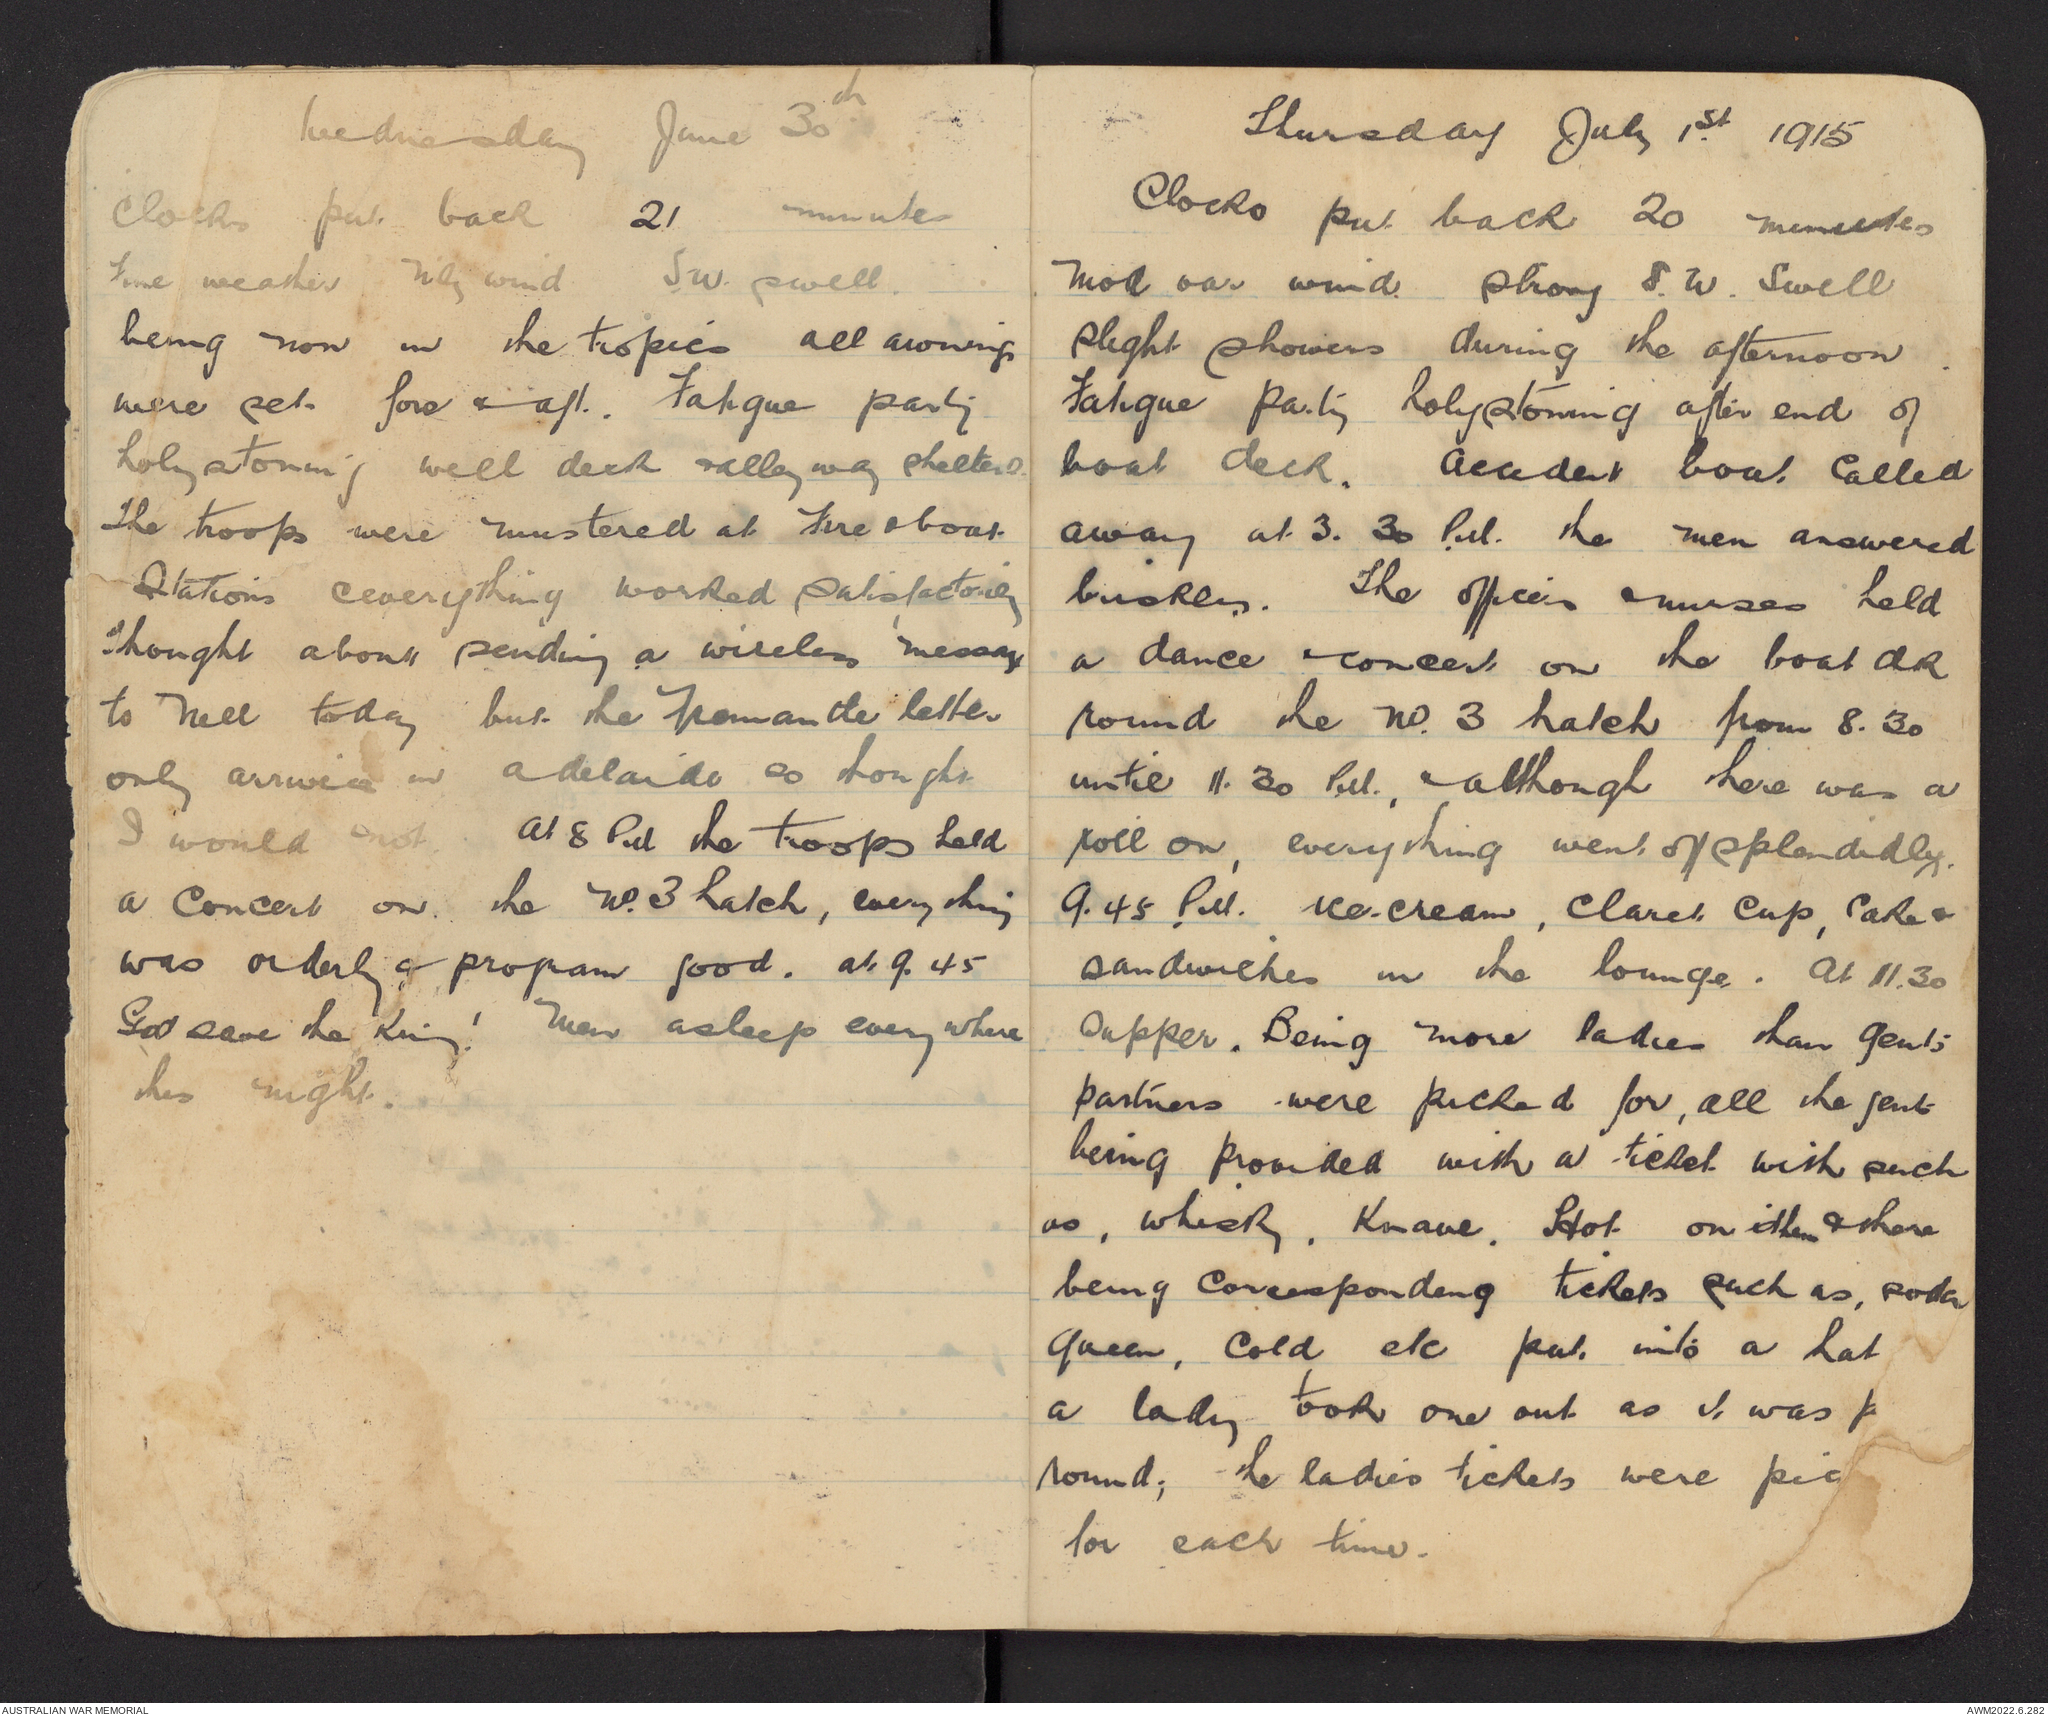 Wednesday June 30th
Clocks put back 21 minutes
Fine weather N'ly wind S.W. swell.
being now in the tropics all awnings
were set fore & aft. Fatigue party
holystoning well deck & alleyway shelters.
The troops were mustered at Fire & boat
Stations & everything worked satisfactorily
Thought about sending a wireless message
to Nell today but the Fremantle letter
only arrives in Adelaide so thought
I would not. At 8 P.M the troops held
a concert on the No. 3 hatch, everything
was orderly & program good. at 9.45
God save the King! Men asleep everywhere
this night.
Thursday July 1st 1915
Clocks put back 20 minutes
Mod var wind strong S.W. Swell
slight showers during the afternoon.
Fatigue party holystoning after end of
boat deck. Accident boat called
away at 3.30 P.M. the men answered
briskly. The officers & nurses held
a dance & concert on the boat dk
round the No. 3 hatch from 8.30
until 11.30 P.M., & although there was a
roll on, everything went off splendidly.
9.45 P.M. ice-cream, claret cup, cake &
sandwiches in the lounge. At 11.30
supper. Being more ladies than gents
partners were picked for, all the gents
being provided with a ticket with such
as, whisky, Knave, Hot on them & there
being corresponding tickets such as, soda
queen, cold etc put into a hat
a lady took one out as it was p
round; the ladies tickets were pic
for each time.
AUSTRALIAN WAR MEMORIAL
AWM2022.6.282